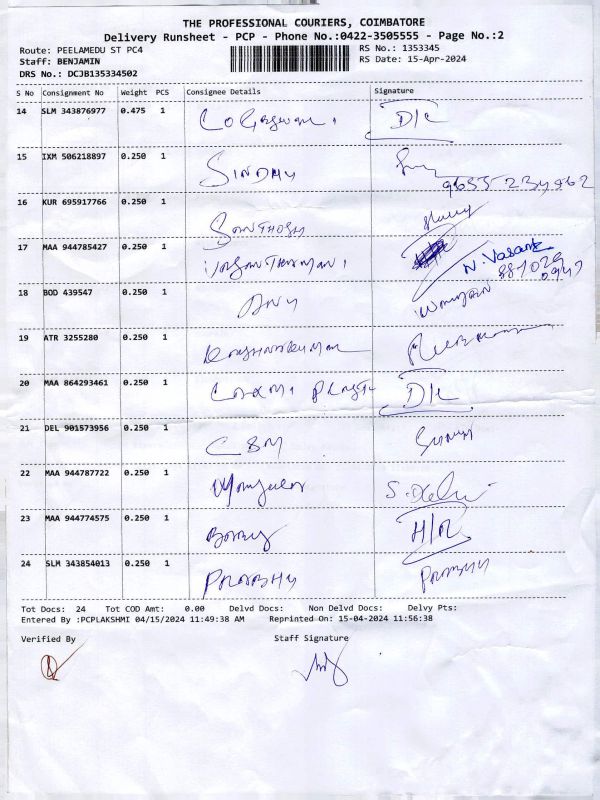 THE PROFESSIONAL COURIERS, COIMBATORE
Delivery Runsheet - PCP - Phone No.:0422-3505555 - Page No.:2
Route: PEELAMEDU ST PC4 RS No.: 1353345
Staff: BENJAMIN RS Date: 15-Apr-2024
DRS No.: DCJB135334502
S No Consignment No Weight PCS Consignee Details Signature
14 SLM 343876977 0.475 1 D/c
15 IXM 506218897 0.250 1 SINDHU
9655 234962
16 KUR 695917766 0.250 1 SANTHOSH
17 MAA 944785427 0.250 1 N. Vasank
18 BOD 439547 0.250 1 ANU
19 ATR 3255280 0.250 1
20 MAA 864293461 0.250 1 D/c
21 DEL 901573956 0.250 1 CSM
22 MAA 944787722 0.250 1
23 MAA 944774575 0.250 1 H/R
24 SLM 343854013 0.250 1 PRABHU Prabhu
Tot Docs: 24 Tot COD Amt: 0.00 Delvd Docs: Non Delvd Docs: Delvy Pts:
Entered By :PCPLAKSHMI 04/15/2024 11:49:38 AM Reprinted On: 15-04-2024 11:56:38
Verified By Staff Signature